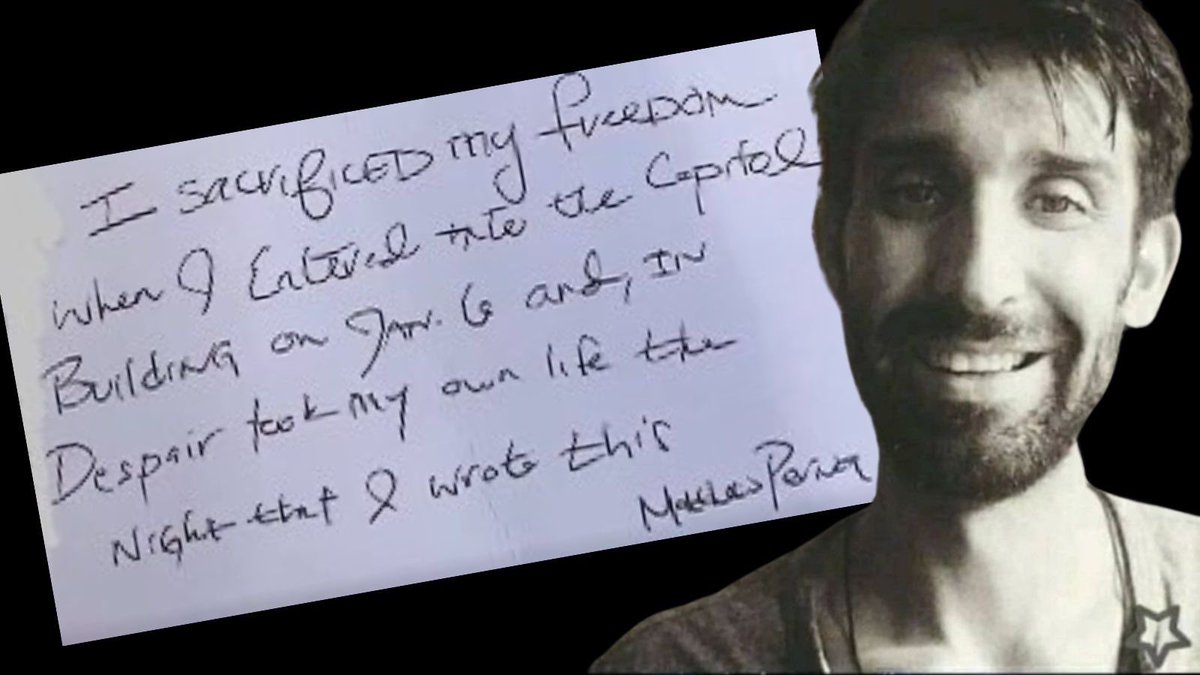 I SACRIFICED my freedom
when I Entered into the Capitol
Building on Jan. 6 and, IN
Despair took my own life the
Night that I wrote this
Matthew Perna